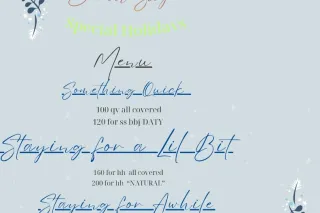 Menu
Something Quick
100 qv all covered
120 for ss bbj DATY
Staying for a Lil Bit
160 for hh all covered
200 for hh "NATURAL"
Staying for Awhile